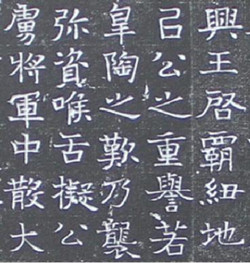 興王啓霸紐地
吕公之重譽若
皐陶之歎乃襲
弥資喉舌擬公
虜將軍中散大